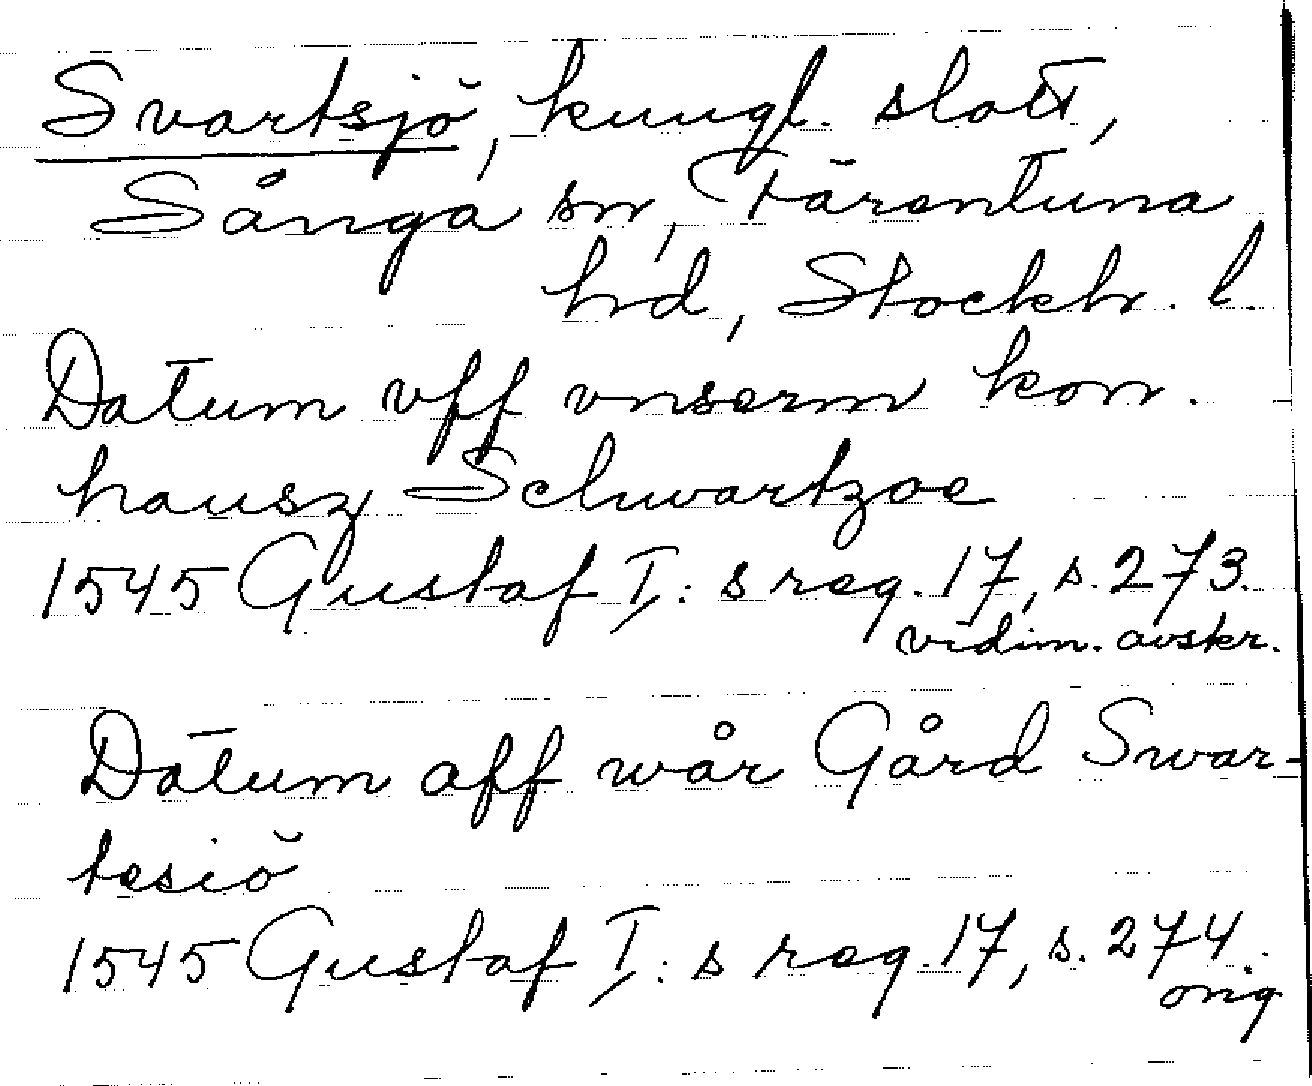 Svartsjö, kungl. slott,
Sånga sn, Färentuna
hd, Stockh. l.
Datum vff vnserm kon.
hausz Schwartzoe
1545 Gustaf I: s reg. 17, s. 273.
vidim. avskr.
Datum aff wår Gård Swar-
tesiö
1545 Gustaf I: s reg. 17, s. 274.
orig